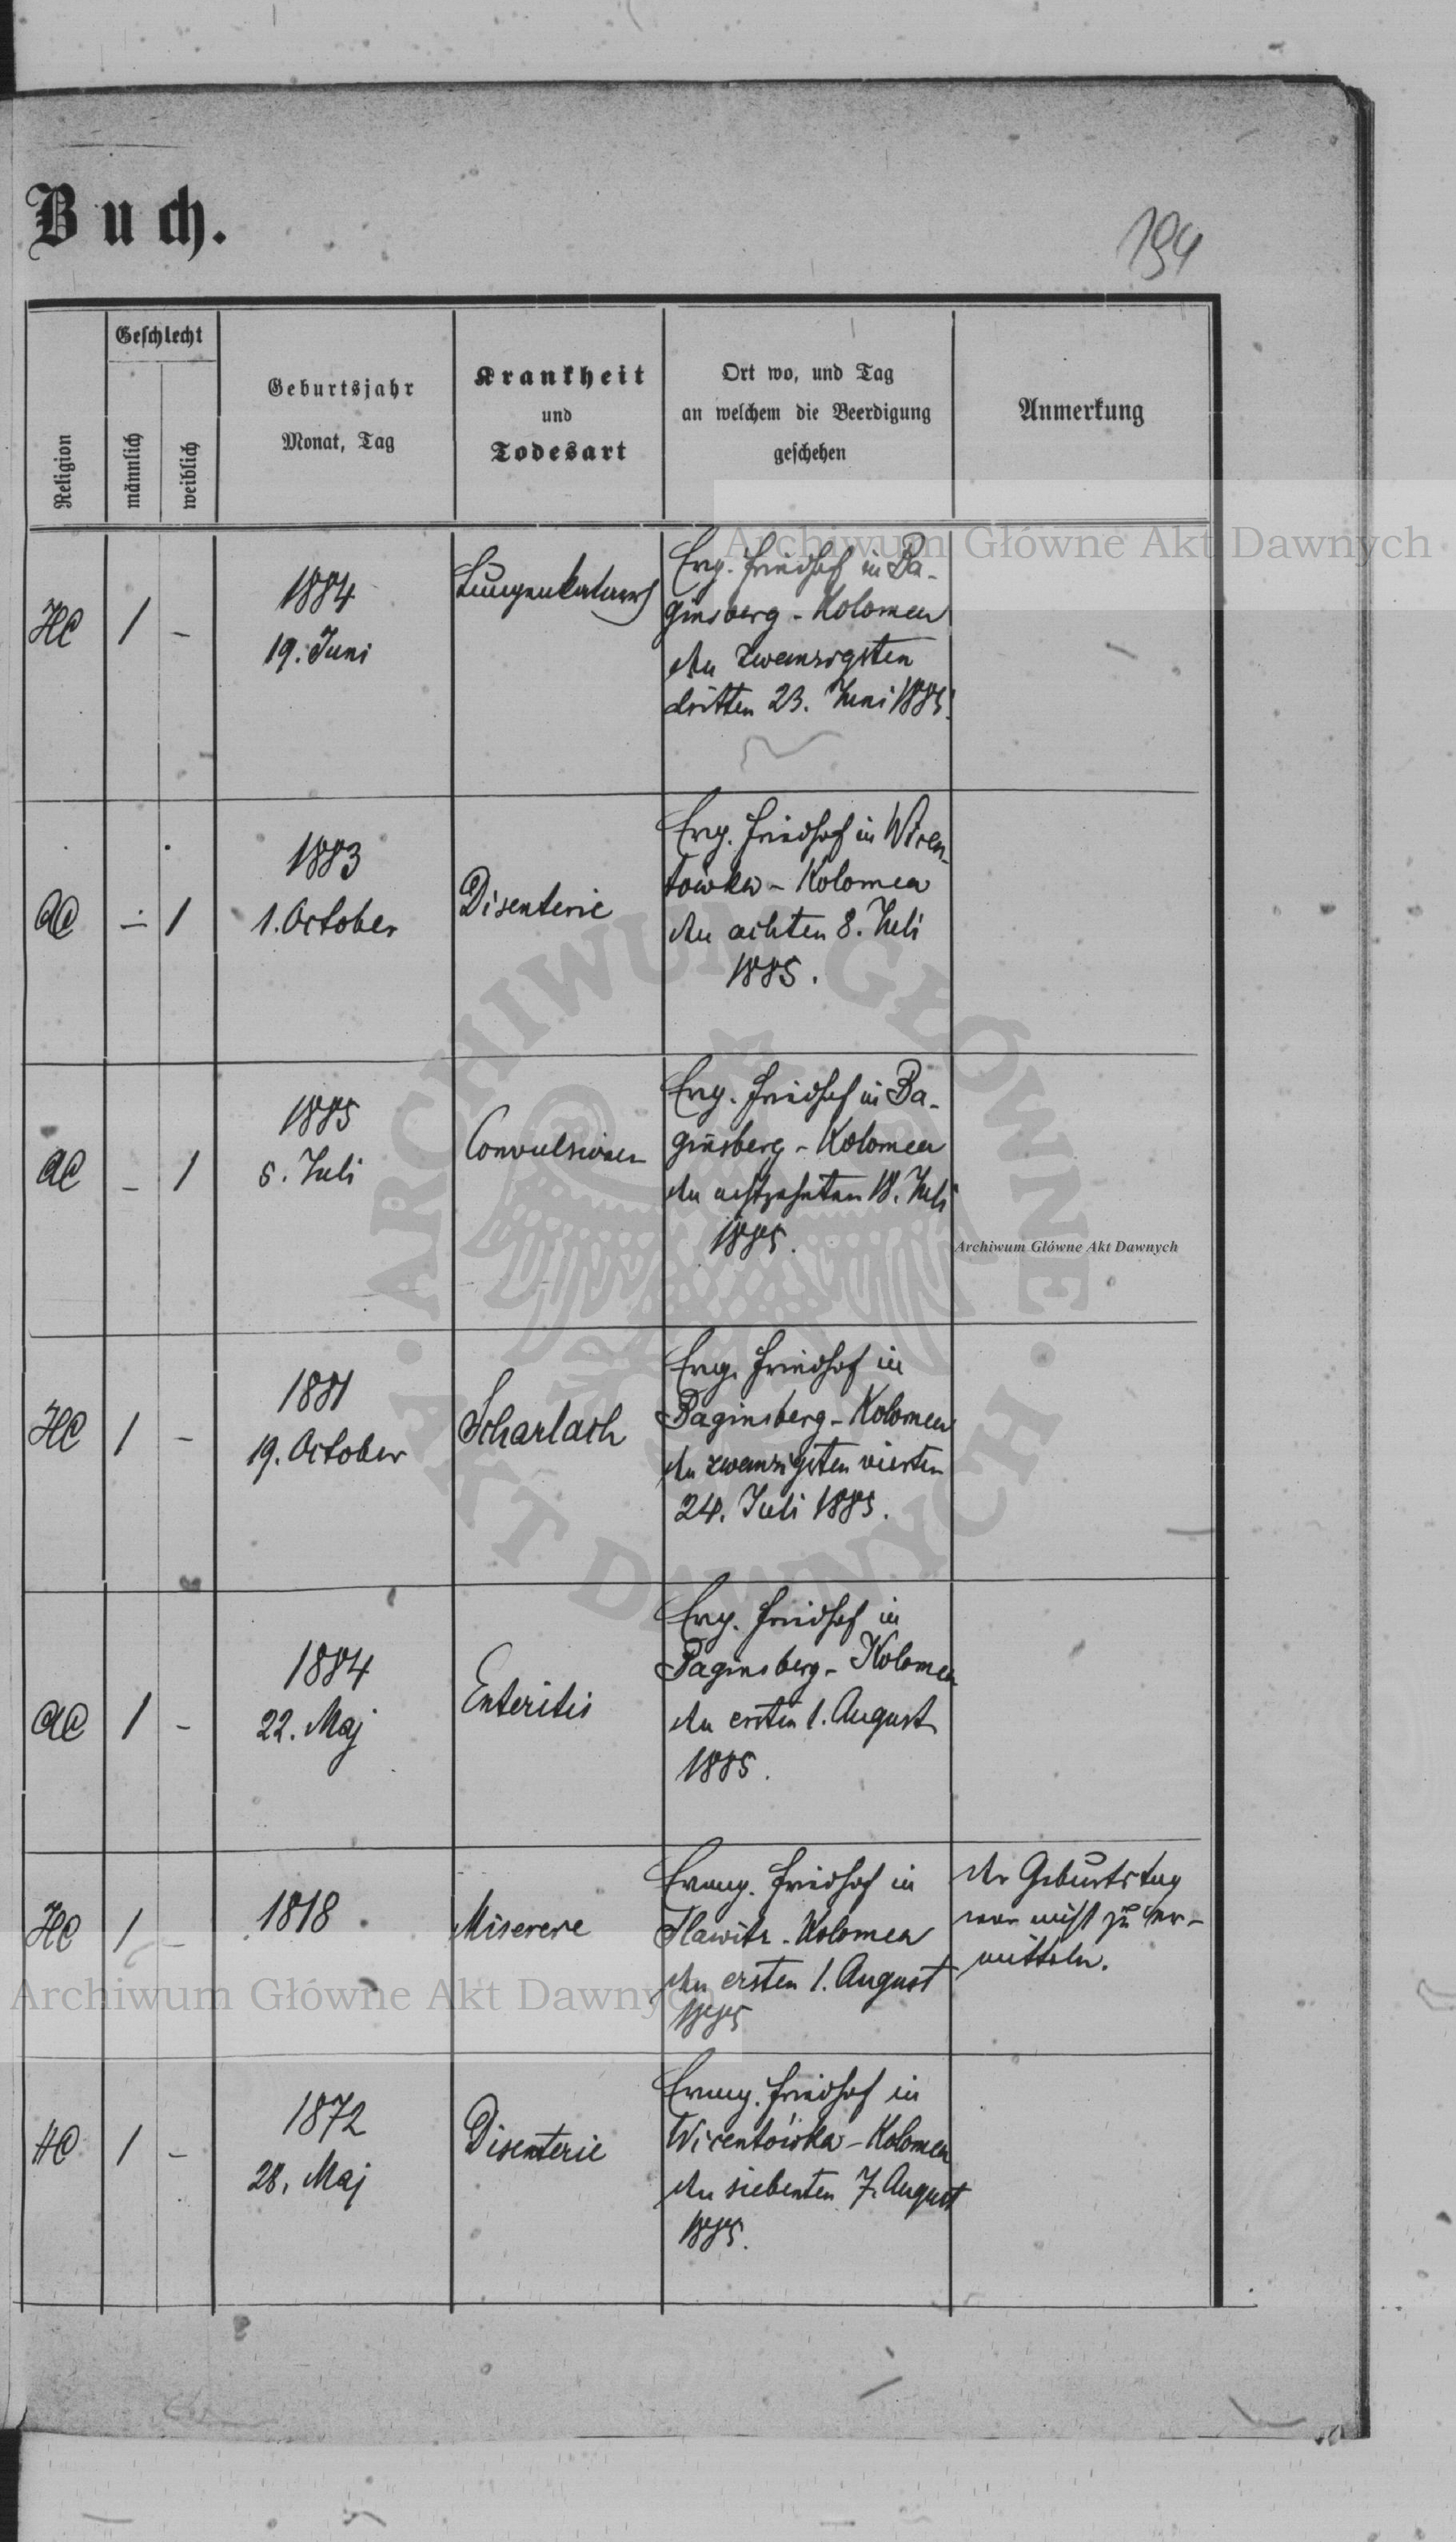 Buch.
194
Religion
Geschlecht
männlich
weiblich
Geburtsjahr
Monat, Tag
Krankheit
und
Todesart
Ort wo, und Tag
an welchem die Beerdigung
geschehen
Anmerkung
Archiwum Główne Akt Dawnych
HC
1
-
1884
19. Juni
Lungenkatarrh
Evg. Friedhof in Ba-
ginsberg - Kolomea
den zwanzigsten
dritten 23. Juni 1885.
AC
-
1
1883
1. October
Disenterie
Evg. Friedhof in Wicen-
tówka - Kolomea
den achten 8. Juli
1885.
AC
-
1
1885
5. Juli
Convulsionen
Evg. Friedhof in Ba-
ginsberg - Kolomea
den achtzehnten 18. Juli
1885.
Archiwum Główne Akt Dawnych
HC
1
-
1881
19. October
Scharlach
Evg. Friedhof in
Baginsberg - Kolomea
den zwanzigsten vierten
24. Juli 1885.
AC
1
-
1884
22. Maj
Enteritis
Evg. Friedhof in
Baginsberg - Kolomea
den ersten 1. August
1885.
HC
1
-
1818
Miserere
Evang. Friedhof in
Slawitz - Kolomea
den ersten 1. August
1885
Der Geburtstag
war nicht zu er-
mitteln.
Archiwum Główne Akt Dawnych
HC
1
-
1872
28. Maj
Disenterie
Evang. Friedhof in
Wicentówka - Kolomea
den siebenten 7. August
1885.
ARCHIWUM GŁÓWNE
AKT DAWNYCH